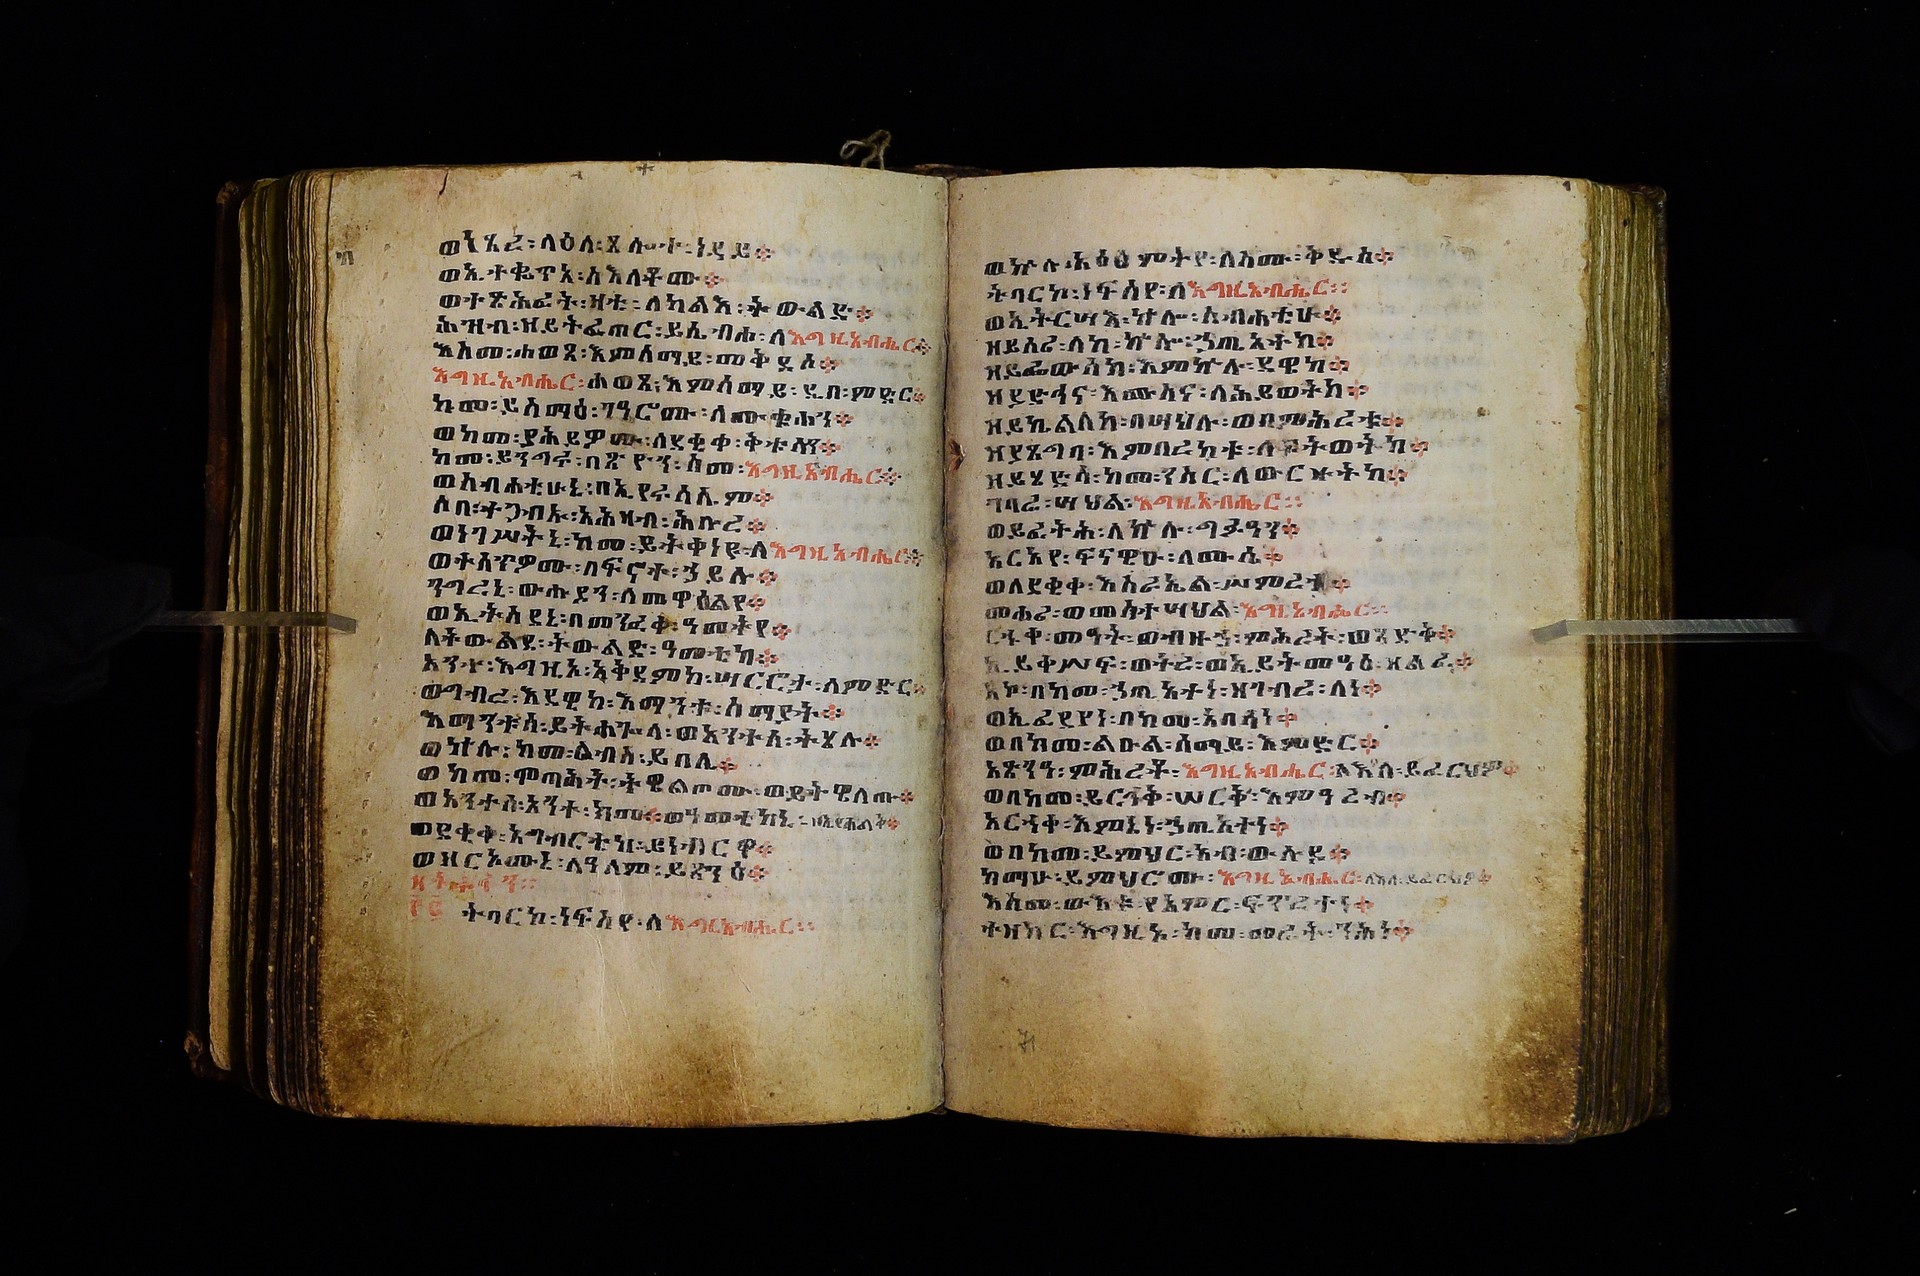 ወነጸረ፡ ለዕለ፡ ጸሎተ፡ ነዳይ።
ወኢተቈጥዓ፡ ስእለቶሙ።
ወተጽሕፈት፡ ዛቲ፡ ለካልእ፡ ትውልድ።
ሕዝብ፡ ዘይትፈጠር፡ ይሴብሑ፡ ለእግዚአብሔር።
እስመ፡ ሐወጸ፡ እምሰማይ፡ መቅደሱ።
እግዚአብሔር፡ ሐወጸ፡ እምሰማይ፡ ዲበ፡ ምድር።
ከመ፡ ይስማዕ፡ ገዓሮሙ፡ ለሙቁሐን።
ወከመ፡ ያሕይዎሙ፡ ለደቂቀ፡ ቅቱላን።
ከመ፡ ይንግሩ፡ በጽዮን፡ ስመ፡ እግዚአብሔር።
ወስብሐቲሁኒ፡ በኢየሩሳሌም።
ሶበ፡ ተጋብኡ፡ አሕዛብ፡ ኅቡረ።
ወነገሥትኒ፡ ከመ፡ ይትቀነዩ፡ ለእግዚአብሔር።
ወተሰጥዎሙ፡ በፍኖተ፡ ኃይሉ።
ንግረኒ፡ ውሑደን፡ ለመዋዕልየ።
ወኢትስደኒ፡ በመንፈቀ፡ ዓመትየ።
ለትውልደ፡ ትውልድ፡ ዓመቲከ።
አንተ፡ እግዚኦ፡ አቅደምከ፡ ሣርሮታ፡ ለምድር።
ወግብረ፡ እደዊከ፡ እማንቱ፡ ሰማያት።
እማንቱሰ፡ ይትሐጐላ፡ ወአንተሰ፡ ትሄሉ።
ወኵሉ፡ ከመ፡ ልብስ፡ ይበሊ።
ወከመ፡ ሞጣሕት፡ ትዌልጦሙ፡ ወይትዌለጡ።
ወአንተሰ፡ አንተ፡ ክመ፡ ወዓመቲከኒ፡ ዘኢየሐልቅ።
ወደቂቀ፡ አግብርቲከ፡ ይነብርዋ።
ወዘርኦሙኒ፡ ለዓለም፡ ይጸንዕ።
ትባርኮ፡ ነፍስየ፡ ለእግዚአብሔር።
ወኵሉ፡ አዕፅምትየ፡ ለስሙ፡ ቅዱስ።
ትባርኮ፡ ነፍስየ፡ ለእግዚአብሔር።
ወኢትርሣእ፡ ኵሎ፡ ስብሐቲሁ።
ዘይሰሪ፡ ለከ፡ ኵሎ፡ ኃጢአተከ።
ዘይፌውሰከ፡ እምኵሉ፡ ደዌከ።
ዘያድኅና፡ እሙስና፡ ለሕይወትከ።
ዘይኬልለከ፡ በሣህሉ፡ ወበምሕረቱ።
ዘያጸግባ፡ እምበረከቱ፡ ለፍትወትከ።
ዘይሄድሳ፡ ከመ፡ ንስር፡ ለውርዙትከ።
ገባሬ፡ ሣህል፡ እግዚአብሔር።
ወይፈትሕ፡ ለኵሉ፡ ግፉዓን።
አርአየ፡ ፍናዊሁ፡ ለሙሴ።
ወለደቂቀ፡ እስራኤል፡ ሥምረቶ።
መሐሪ፡ ወመስተሣህል፡ እግዚአብሔር።
ርኁቀ፡ መዓት፡ ወብዙኅ፡ ምሕረት፡ ወጻድቅ።
ኢይቀሥፍ፡ ወትረ፡ ወኢይትመዓዕ፡ ዘልፈ።
አኮ፡ በከመ፡ ኃጢአተነ፡ ዘገብረ፡ ለነ።
ወኢፈደየነ፡ በከመ፡ አበሳነ።
ወበከመ፡ ልዑል፡ ሰማይ፡ እምድር።
አጽንዓ፡ ምሕረቶ፡ እግዚአብሔር፡ ለእለ፡ ይፈርህዎ።
ወበከመ፡ ይርኅቅ፡ ሠርቅ፡ እምዓረብ።
አርኀቀ፡ እምኔነ፡ ኃጢአተነ።
ወበከመ፡ ይምህር፡ አብ፡ ውሉደ።
ከማሁ፡ ይምህሮሙ፡ እግዚአብሔር፡ ለእለ፡ ይፈርህዎ።
እስመ፡ ውእቱ፡ የአምር፡ ፍጥረተነ።
ተዘከር፡ እግዚኦ፡ ከመ፡ መሬት፡ ንሕነ።
71